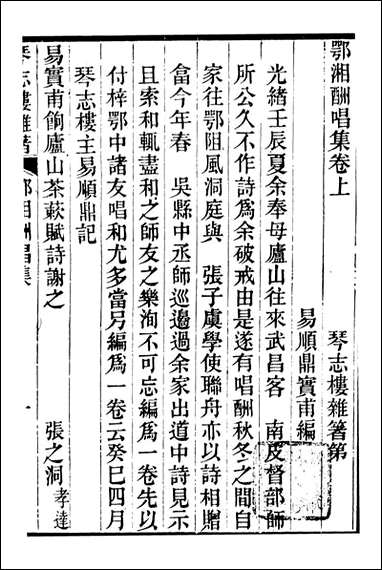 鄂湘酬唱集卷上
琴志樓雜箸第
易順鼎實甫編
光緒壬辰夏余奉母廬山往來武昌客 南皮督部師
所公久不作詩爲余破戒由是遂有唱酬秋冬之間自
家往鄂阻風洞庭與 張子虞學使聯舟亦以詩相贈
畣今年春 吳縣中丞師巡邊過余家出道中詩見示
且索和輒盡和之師友之樂洵不可忘編爲一卷先以
付梓鄂中諸友唱和尤多當另編爲一卷云癸巳四月
琴志樓主易順鼎記
易實甫餉廬山茶蕨賦詩謝之
張之洞 孝達
琴志樓雜箸
鄂湘酬唱集
一